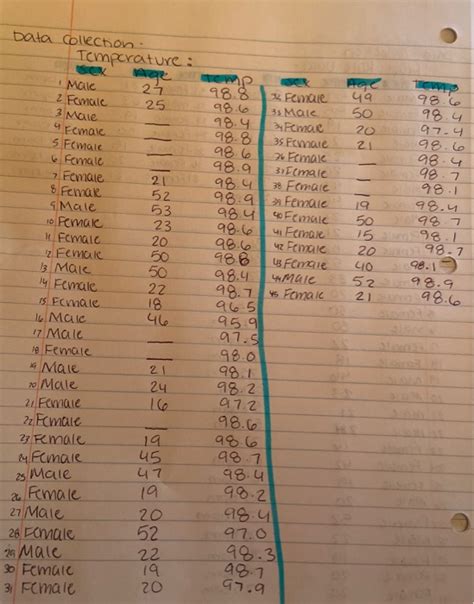 Data Collection:
Temperature:
Sex Age Temp
1 Male 27 98.8
2 Female 25 98.6
3 Male — 98.4
4 Female — 98.8
5 Female — 98.6
6 Female — 98.9
7 Female 21 98.4
8 Female 52 98.9
9 Male 53 98.4
10 Female 23 98.6
11 Female 20 98.6
12 Female 50 98.6
13 Male 50 98.4
14 Female 22 98.7
15 Female 18 96.5
16 Male 46 95.9
17 Male — 97.5
18 Female — 98.0
19 Male 21 98.1
20 Male 24 98.2
21 Female 16 97.2
22 Female — 98.6
23 Female 19 98.6
24 Female 45 98.7
25 Male 47 98.4
26 Female 19 98.2
27 Male 20 98.4
28 Female 52 97.0
29 Male 22 98.3
30 Female 19 98.7
31 Female 20 97.9
Sex Age Temp
32 Female 49 98.6
33 Male 50 98.4
34 Female 20 97.4
35 Female 21 98.6
36 Female — 98.4
37 Female — 98.7
38 Female — 98.1
39 Female 19 98.4
40 Female 50 98.7
41 Female 15 98.1
42 Female 20 98.7
43 Female 40 98.1
44 Male 52 98.9
45 Female 21 98.6